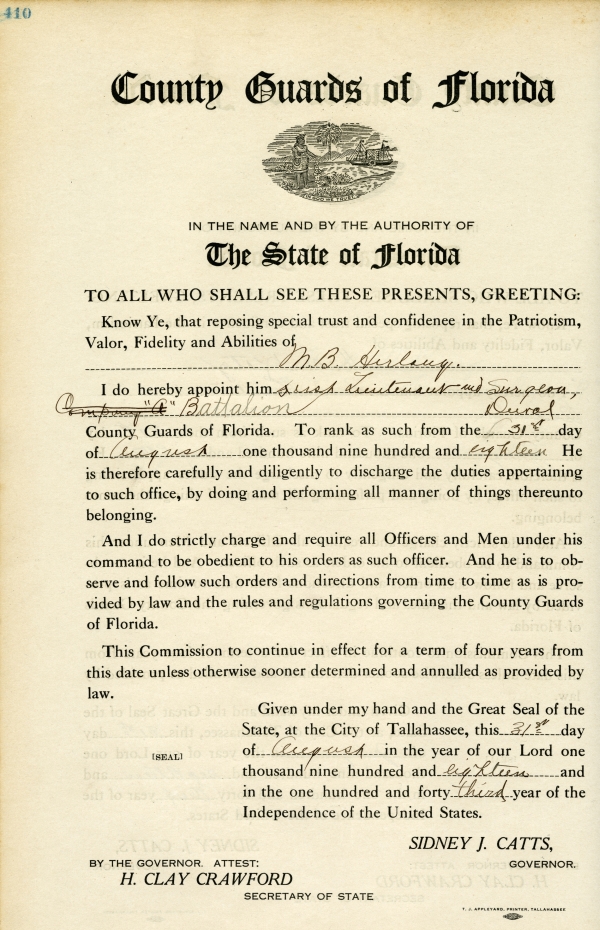 410
County Guards of Florida
IN GOD WE TRUST
IN THE NAME AND BY THE AUTHORITY OF
The State of Florida
TO ALL WHO SHALL SEE THESE PRESENTS, GREETING:
Know Ye, that reposing special trust and confidence in the Patriotism,
Valor, Fidelity and Abilities of
M B Herlong.
I do hereby appoint him First Lieutenant and Surgeon,
Company "A" Battalion Duval
County Guards of Florida. To rank as such from the 31st day
of August one thousand nine hundred and eighteen He
is therefore carefully and diligently to discharge the duties appertaining
to such office, by doing and performing all manner of things thereunto
belonging.
And I do strictly charge and require all Officers and Men under his
command to be obedient to his orders as such officer. And he is to ob-
serve and follow such orders and directions from time to time as is pro-
vided by law and the rules and regulations governing the County Guards
of Florida.
This Commission to continue in effect for a term of four years from
this date unless otherwise sooner determined and annulled as provided by
law.
Given under my hand and the Great Seal of the
State, at the City of Tallahassee, this 31st day
[SEAL] of August in the year of our Lord one
thousand nine hundred and eighteen and
in the one hundred and forty third year of the
Independence of the United States.
SIDNEY J. CATTS,
GOVERNOR.
BY THE GOVERNOR. ATTEST:
H. CLAY CRAWFORD
SECRETARY OF STATE
T. J. APPLEYARD, PRINTER, TALLAHASSEE